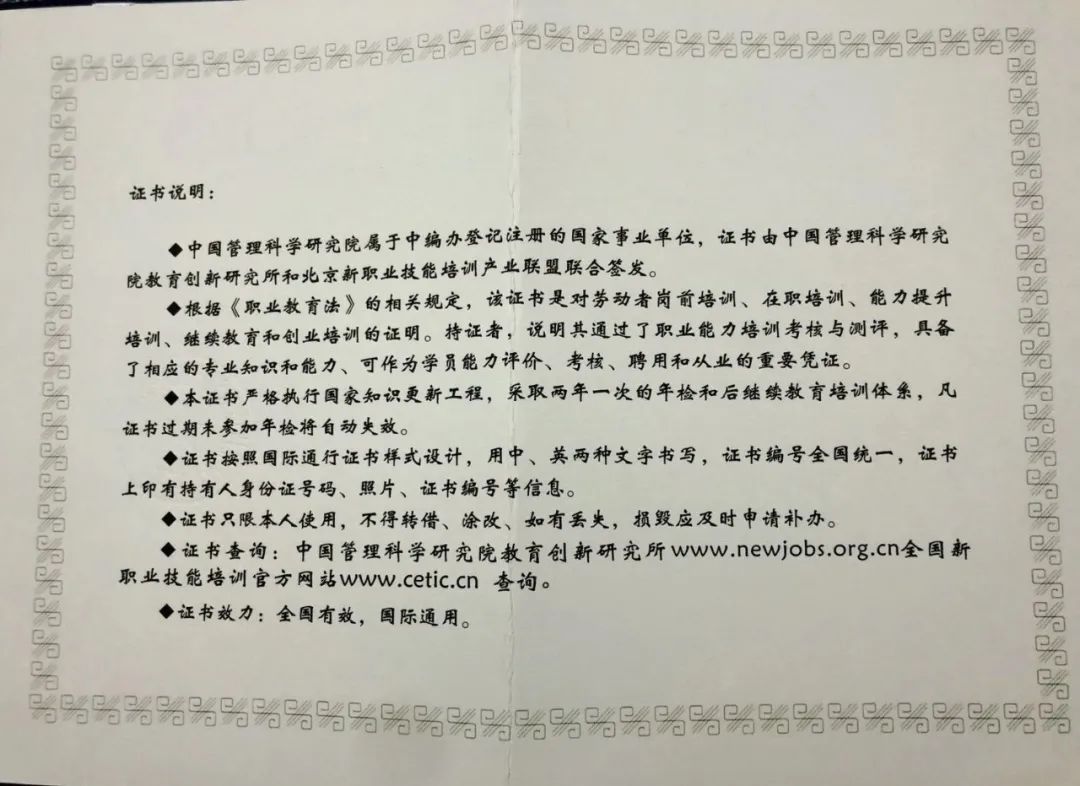 证书说明：
◆中国管理科学研究院属于中编办登记注册的国家事业单位，证书由中国管理科学研究
院教育创新研究所和北京新职业技能培训产业联盟联合签发。
◆根据《职业教育法》的相关规定，该证书是对劳动者岗前培训、在职培训、能力提升
培训、继续教育和创业培训的证明。持证者，说明其通过了职业能力培训考核与测评，具备
了相应的专业知识和能力、可作为学员能力评价、考核、聘用和从业的重要凭证。
◆本证书严格执行国家知识更新工程，采取两年一次的年检和后继续教育培训体系，凡
证书过期未参加年检将自动失效。
◆证书按照国际通行证书样式设计，用中、英两种文字书写，证书编号全国统一，证书
上印有持有人身份证号码、照片、证书编号等信息。
◆证书只限本人使用，不得转借、涂改、如有丢失，损毁应及时申请补办。
◆证书查询：中国管理科学研究院教育创新研究所www.newjobs.org.cn全国新
职业技能培训官方网站www.cetic.cn 查询。
◆证书效力：全国有效，国际通用。